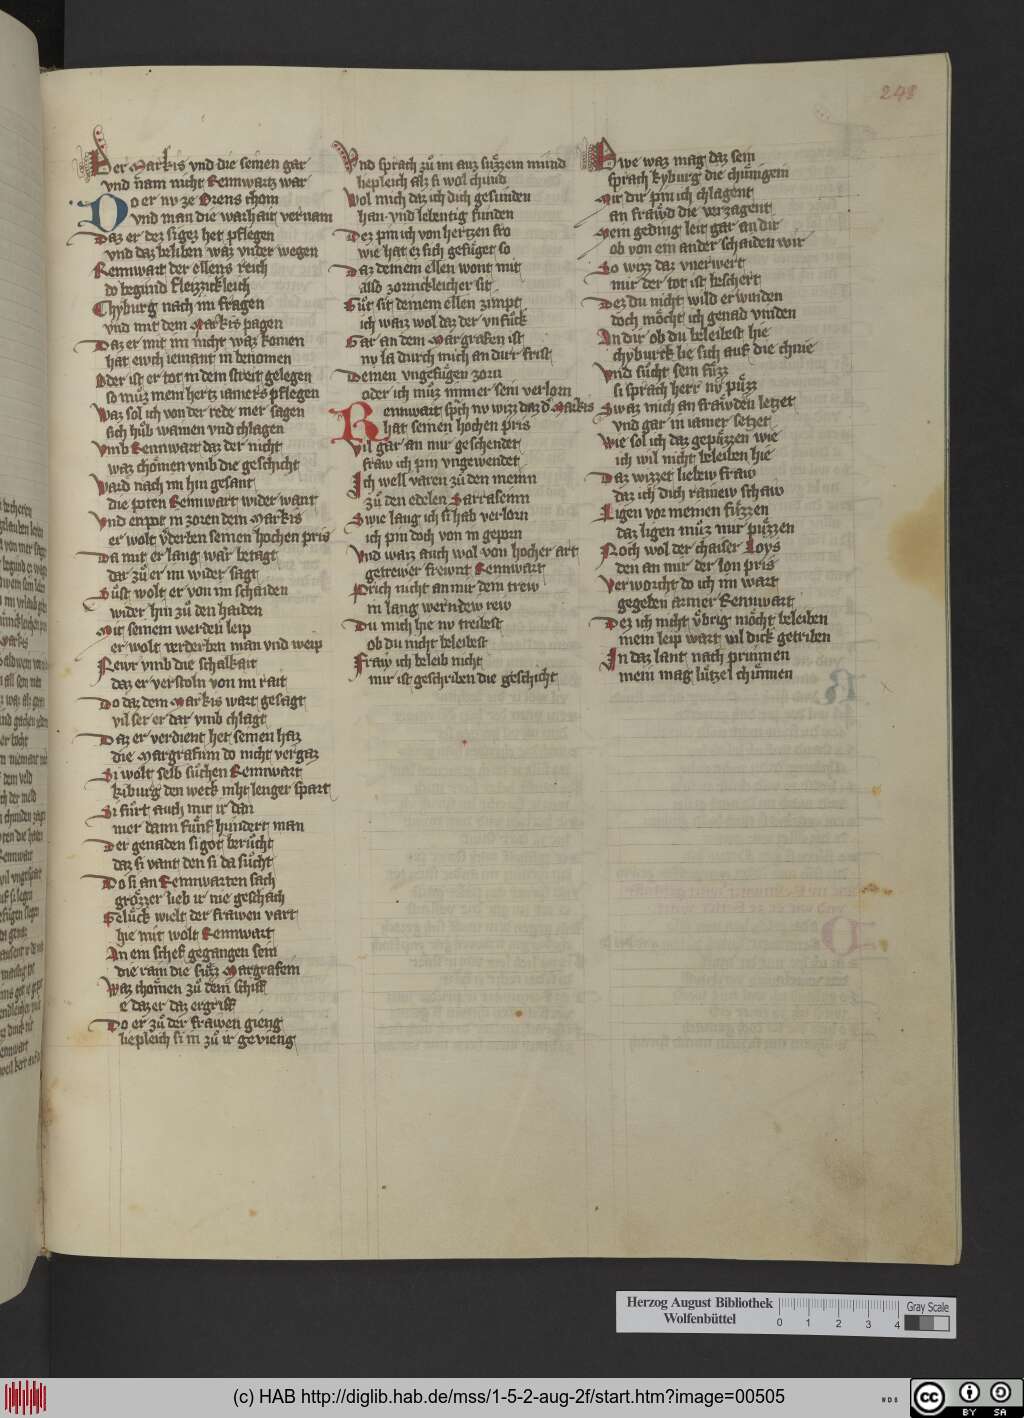 248
Der Markis vnd die seinen gar
vnd nam nicht Rennwartz war
Do er nv ze Orens chom
vnd man die warhait vernam
Daz er dez sigez het pflegen
vnd daz beliben waz vnder wegen
Rennwart der ellens reich
do begund fleizzickleich
Chyburg nach im fragen
vnd mit dem Markis pagen
Daz er mit im nicht waz komen
hat ewch iemant in benomen
Oder ist er tot in dem streit gelegen
so můz mein hertz iamers pflegen
Waz sol ich von der rede mer sagen
sich hůb wainen vnd chlagen
Vmb Rennwart daz der nicht
waz chomen vmb die geschicht
Ward nach im hin gesant
die poten Rennwart wider want
Vnd enpot in zoren dem Markis
er wolt v̊derben seinen hochen pris
Da mit er lang war betagt
dar zů er im wider sagt
Sůst wolt er von im schaiden
wider hin zů den haiden
Mit seinem werden leip
er wolt verderben man vnd weip
Fewr vmb die schalkait
daz er verstoln von im rait
Do daz dem Markis wart gesagt
vil ser er dar vmb chlagt
Daz er verdient het seinen haz
die Margrafinn do nicht vergaz
Si wolt selb sůchen Rennwart
kiburg den weck niht lenger spart
Si fůrt auch mit ir dan
mer dann fůnf hundert man
Der genaden si got berůcht
daz si vant den si da sůcht
Do si an Rennwarten sach
grozzer lieb ir nie geschach
Gelůck wielt der frawen vart
hie mit wolt Rennwart
An ein schef gegangen sein
die rain die sůzz Margrafein
Waz chomen zů dem schiff
e daz er daz ergriff
Do er zů der frawen gieng
liepleich si in zů ir gevieng
Vnd sprach zů im auz sůzzem mund
liepleich alz si wol chund
Wol mich daz ich dich gesunden
han vnd lebentig funden
Dez pin ich von hertzen fro
wie hat ez sich gefůget so
Daz deinem ellen wont mit
also zornickleicher sit
Gůt sit deinem ellen zimpt
ich waiz wol daz der vnfůck
Gar an dem Margrafen ist
nv la durch mich an durr frist
Deinen vngefůgen zorn
oder ich můz immer sein verlorn
Rennwart sp̄ch nv wizz daz d̊ Markis
hat seinen hochen pris
Vil gar an mir geschendet
fraw ich pin vngewendet
Ich well varen zů den meinn
zů den edelen Sarrasenin
Swie lang ich si hab verlorn
ich pin doch von in geporn
Vnd waiz auch wol von hocher art
getrewer frewnt Rennwart
Prich nicht an mir dein trew
in lang werndew rew
Du mich hie nv treibest
ob du nicht beleibest
Fraw ich beleib nicht
mir ist geschriben die geschicht
Awe waz mag daz sein
sprach kyburg die chůnigein
Mir dir pin ich chlagent
an frawd die verzagent
Mein geding leit gar an dir
ob von ein ander schaiden wir
So wizz daz vnerwert
mir der tot ist beschert
Dez du nicht wild erwinden
doch mocht ich genad vinden
An dir ob du beleibest hie
chyburck lie sich auf die chnie
Vnd sůcht sein fůzz
si sprach herr nv půzz
Swaz mich an frawden letzet
vnd gar in iamer setzet
Wie sol ich daz gepůzzen wie
ich wil nicht beleiben hie
Daz wizzet liebew fraw
daz ich dich rainew schaw
Ligen vor meinen fůzzen
daz ligen můz mir půzzen
Noch wol der chaiser Loys
den an mir der lon pris
Verworcht do ich im wart
gegeben armer Rennwart
Dez ich nicht v̊brig mocht beleiben
mein leip wart vil dick getriben
In daz lant nach prunnen
mein mag lůtzel chunnen
Herzog August Bibliothek
Wolfenbüttel
0 1 2 3 4
Gray Scale
(c) HAB http://diglib.hab.de/mss/1-5-2-aug-2f/start.htm?image=00505
CC BY SA